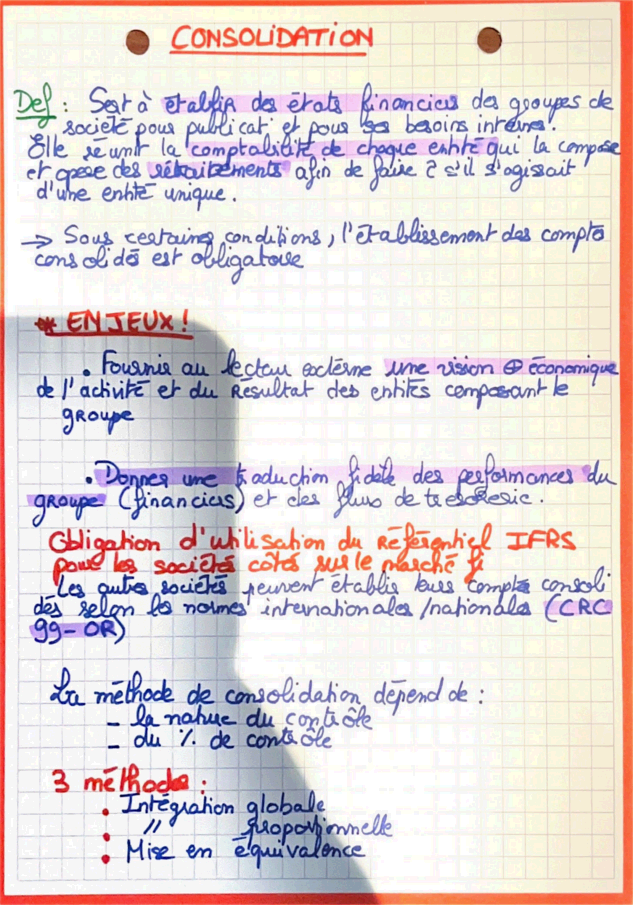 CONSOLIDATION
Def : Sert à établir des états financiers des groupes de
société pour publicat° et pour ses besoins internes.
Elle réunit la comptabilité de chaque entité qui la compose
et opere des retraitements afin de faire c s'il s'agissait
d'une entité unique.
→ Sous certaines conditions, l'établissement des compts
consolidés est obligatoire
* ENJEUX !
• Fournir au lecteur externe une vision ⊕ économique
de l'activité et du Résultat des entités composant le
groupe
• Donner une traduction fidèle des performances du
groupe (financiers) et des flux de tresoresie.
Obligation d'utilisation du Référentiel IFRS
pour les sociétés cotés sur le marché fi
Les autres sociétés peuvent établir leurs compts consoli
dés selon les normes internationales/nationales (CRC
99-OR)
La méthode de consolidation dépend de :
- la nature du contrôle
- du % de contrôle
3 méthodes :
• Intégration globale
• " proportionnelle
• Mise en équivalence